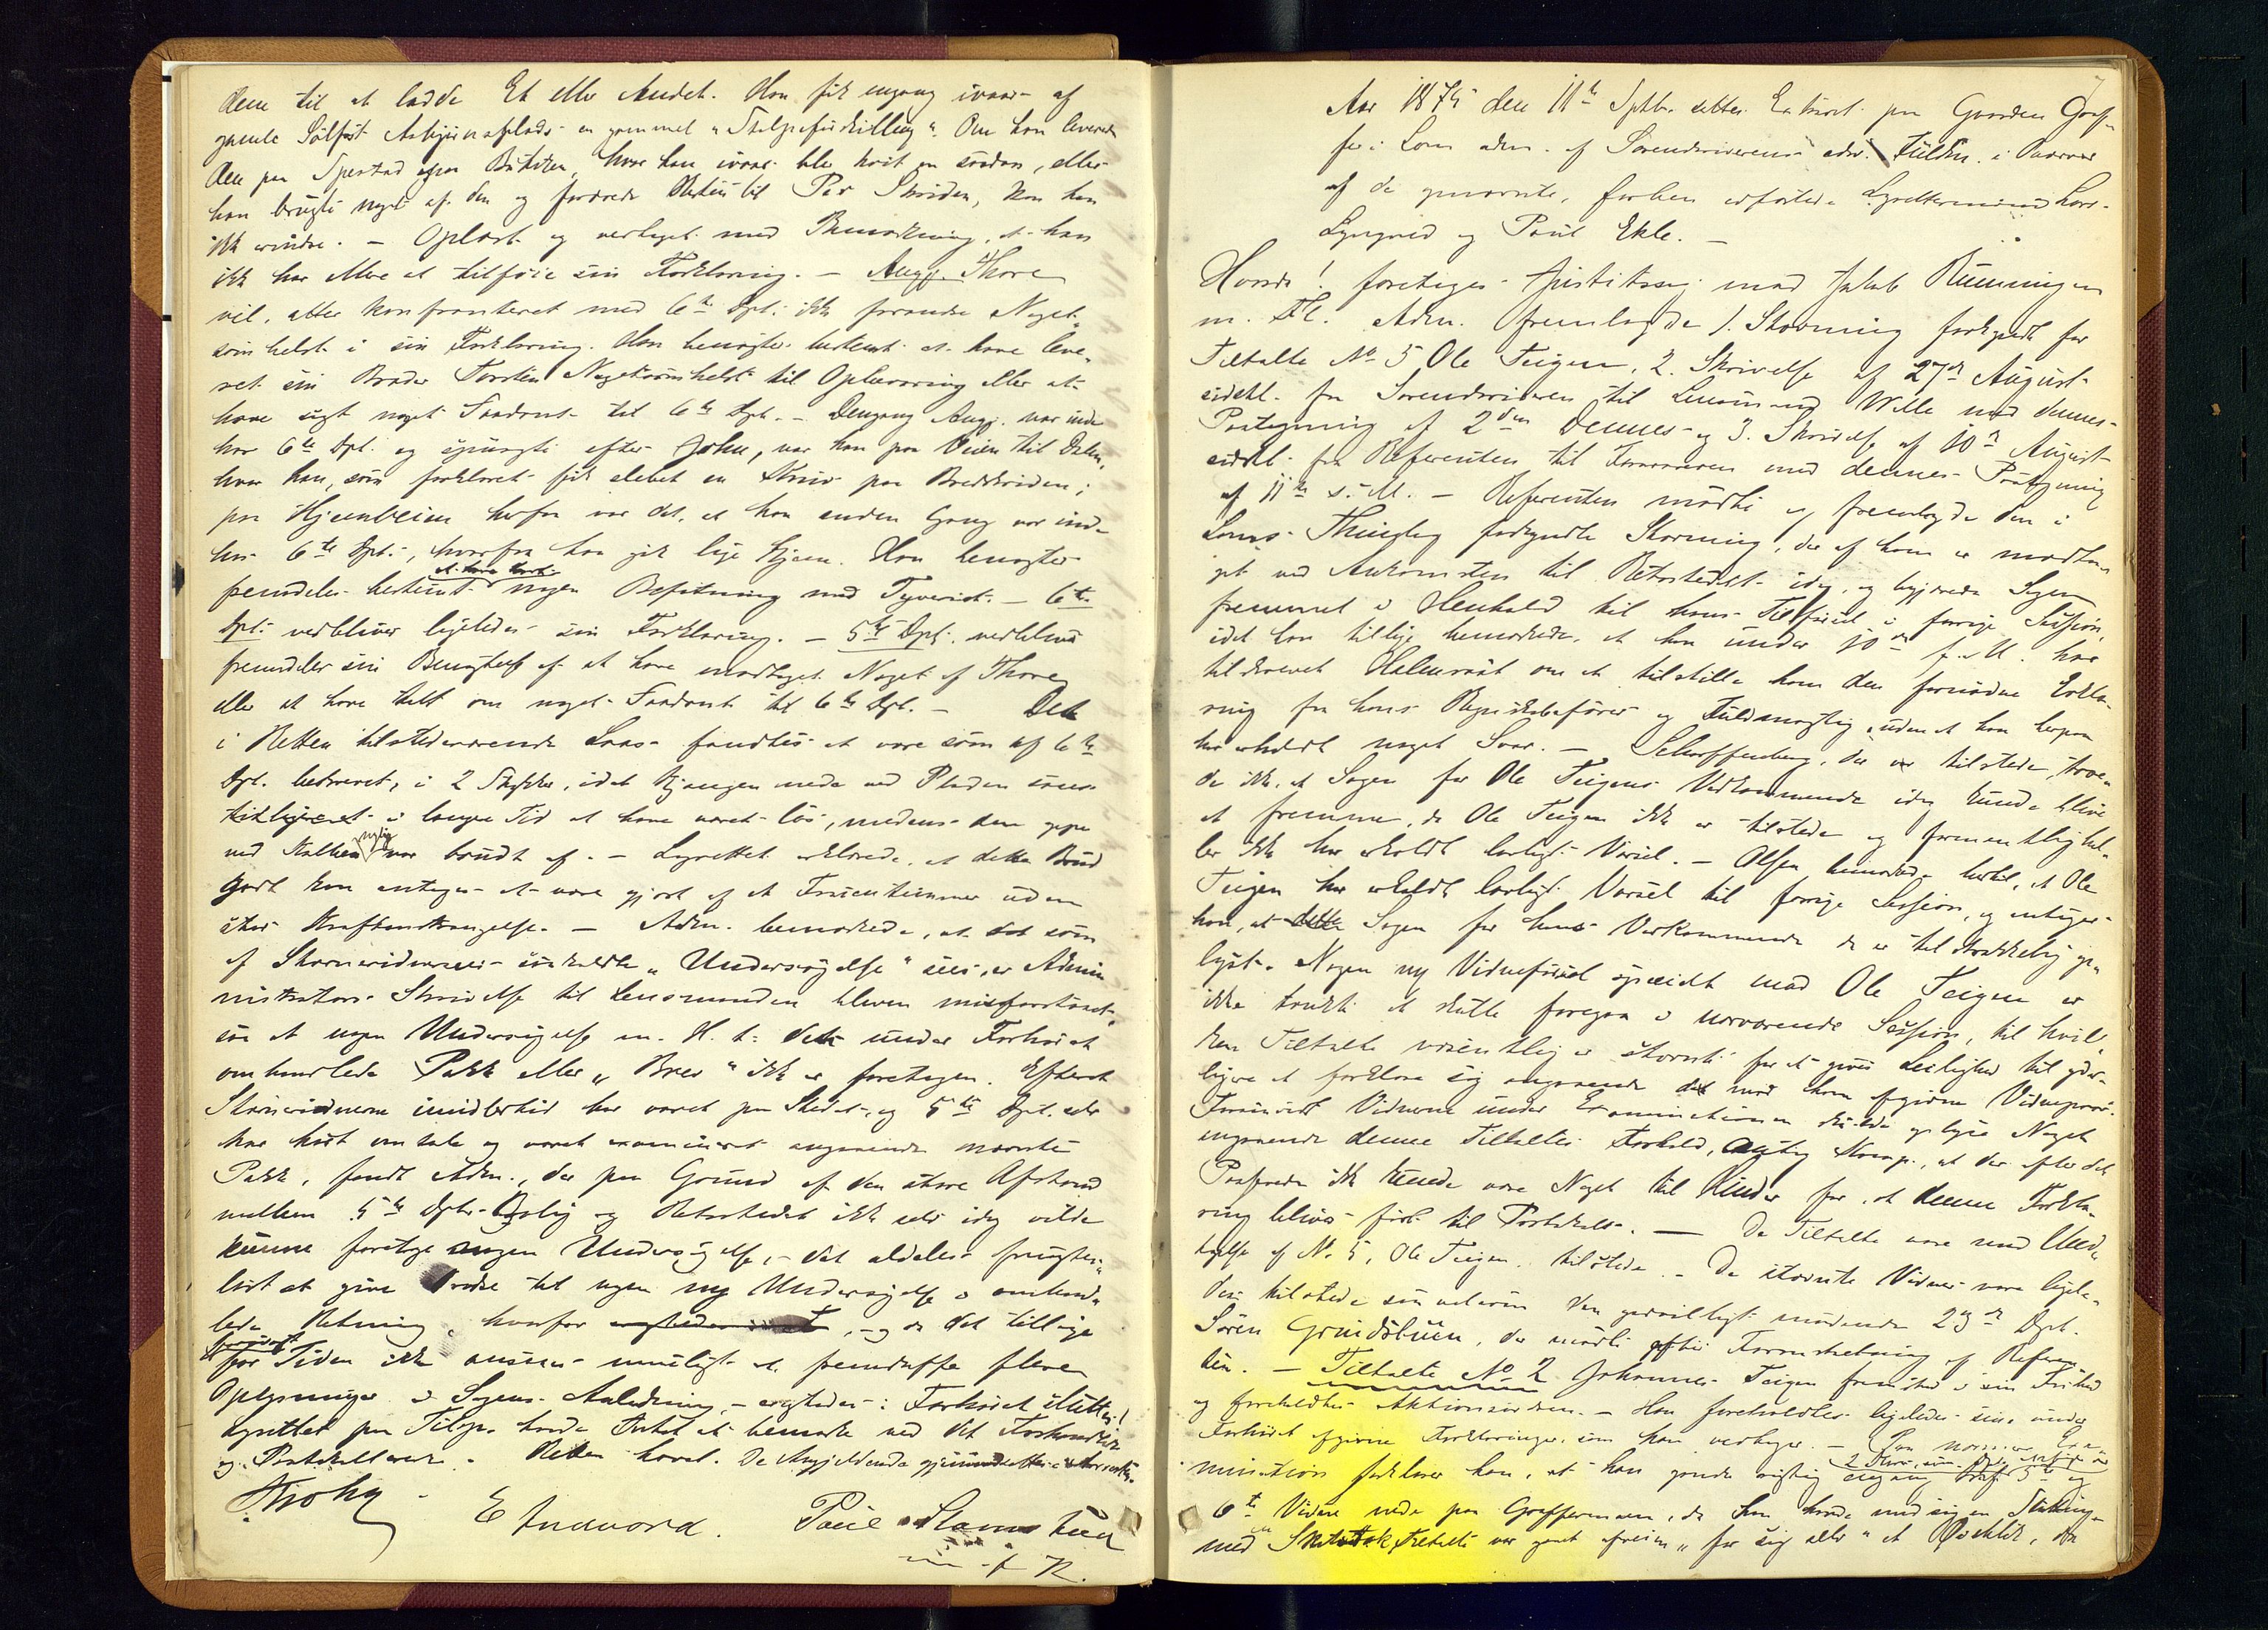 dem til at ladde Et eller Andet. Han fik engang ivaar af
gamle Sølfæst Asbjørnsplads en gammel „Stolpeforskilling“. Om han leverede
den paa Sperstad
han brugte noget af den og forærede Resten til Per Skriden, kan han
ikke erindre. – Oplæst og vedtaget med Bemærkning, at han
ikke har Mere at tilføie sin Forklaring. – Angj. Thore
vil, atter konfronteret med 6te Dpt. ikke forandre Noget-
somhelst i sin Forklaring. Han benægter bestemt at have leve-
ret sin Broder Torsten Nogetsomhelst til Opbevaring eller at
have sagt noget Saadant til 6te Dpt. – Dengang Angj. var inde
hos 6te Dpt. og spurgte efter John, var han paa Veien til Dalen,
hvor han, som forklaret fik slebet en Kniv paa Bredskriden;
paa Hjemveien herfra var det, at han anden Gang var inde
hos 6te Dpt., hvorfra han gik lige hjem. Han benægter
fremdeles bestemt at have havt nogen Befatning med Tyveriet. – 6te
Dpt. vedbliver ligeledes sin Forklaring. – 5te Dpt. vedbliver
fremdeles sin Benægtelse af at have modtaget Noget af Thore
eller at have talt om noget Saadant til 6te Dpt. – Det
i Retten tilstedeværende Laas fandtes at være som af 6te
Dpt. beskrevet, i 2 Stykker, idet
i længere Tid at have været løs, medens den
ved nylig var brudt af. – Lagrettet erklærede, at dette Brud
godt kan antages at være gjort af et Fruentimmer uden
stor Kraftanstrængelse. – Adm. bemærkede, at det som
af Skrivevidnernes saakaldte „Undersøgelse“ sees, er Admi-
nistrators Skrivelse til Lensmanden bleven misforstaaet,
saa at nogen Undersøgelse m. H. t. det under Forhøret
omhandlede Pakke eller „Brev“ ikke er foretagen. Efterat
Skrivevidnerne imidlertid har været paa Stedet, og 5te Dpt. selv
har hørt omtale og været examineret angaaende nævnte
Pakke, fandt Adm., der paa Grund af den store Afstand
mellem 5te Dpts Bolig og Retsstedet ikke selv idag vilde
kunne foretage nogen Undersøgelse, – det aldeles frugtes-
løst at give Ordre til nogen ny Undersøgelse i omhand-
lede Retning, hvorfor, – og da det tillige
for Tiden ikke ansees muligt at fremskaffe flere
Oplysninger i Sagens Anledning, – eragtedes: Forhøret sluttes!
Lagrettet paa Tilsp. havde Intet at bemærke ved det Forhandlede
og Protokollerede. Retten hævet. De Angjeldende gjenindsattes i Arresten.
Krohg. E Andvord. Paul Slamstuen
m. f. P.
7
Aar 1875 den 11te Septbr. sattes Extraret paa Gaarden Graf-
fer i Lom adm. af Sorenskriverens edsv. Fuldm. i Overvær
af de opnævnte, forhen edfæstede Lagrettesmænd Lars
Lyngved og Poul Ekle. –
Hvorda! foretages Justitssag mod Jakob Rumningen
m. Fl. Adm. fremlagde 1. Stævning forkyndt for
Tiltalte No 5 Ole Teigen, 2. Skrivelse af 27de August
sidstl. fra Sorenskriveren til Lensmand Wille med dennes
Paategning af 2den Dennes og 3. Skrivelse af 10de August
sidstl. fra Referenten til Forsvareren med dennes Paategning
af 11te s. M. – Referenten mødte og fremlagde den i
Loms Thinglag forkyndte Stævning, der af ham er modta-
get ved Ankomsten til Retsstedet idag, og begjærede Sagen
fremmet i Henhold til hans Tilførsel i forrige Session,
idet han tillige bemærkede, at han under 10de f. M. har
tilskrevet Halmrast om at tilstille ham den fornødne Erklæ-
ring fra hans Regnskabsfører og Fuldmægtig, uden at han herpaa
har erholdt noget Svar. – Scharffenberg, der var tilstede, troe-
de ikke, at Sagen for Ole Teigens Vedkommende idag kunde blive
at fremme, da Ole Teigen ikke er tilstede og formentlig hel-
ler ikke har erholdt lovligt Varsel. – Olsen bemærkede hertil, at Ole
Teigen har erholdt lovligt Varsel til forrige Session, og antager
han, at Sagen for hans Vedkommende da er tilstrækkelig op-
lyst. Nogen ny Vidneførsel specielt mod Ole Teigen er
ikke tænkt at skulle foregaa i nærværende Session, til hvil-
ken Tiltalte væsentlig er stævnt for at gives Leilighed til yder-
ligere at forklare sig angaaende det mod ham afgivne Vidneprov.
Forsaavidt Vidnerne under Examinationen skulde oplyse Noget
angaaende denne Tiltaltes Forhold, antog Komp., at der efter det
Passerede ikke kunde være Noget til Hinder for, at denne Forkla-
ring blev ført til Protokols. – De Tiltalte vare med Und-
tagelse af No. 5, Ole Teigen, tilstede. – De stævnte Vidner vare ligele-
des tilstede saavelsom den godvilligt mødende 23de Dpt.
Søren Grindstuen, der mødte efter Foranstaltning af Referen-
ten. – Tiltalte No 2 Johannes Teigen fremstod i sin Frihed
og foreholdtes Aktionsordren. – Han foreholdtes ligeledes sine under
Forhøret afgivne Forklaringer, som han vedtager. – Paa nærmere Exa-
mination forklarer han, at han ganske rigtig engang traf 5te og
6te Vidne nede paa Graffermoen, da han havde med sig en
med Tiltalte var gaaet afveien „for sig selv“ et Øieblik, da